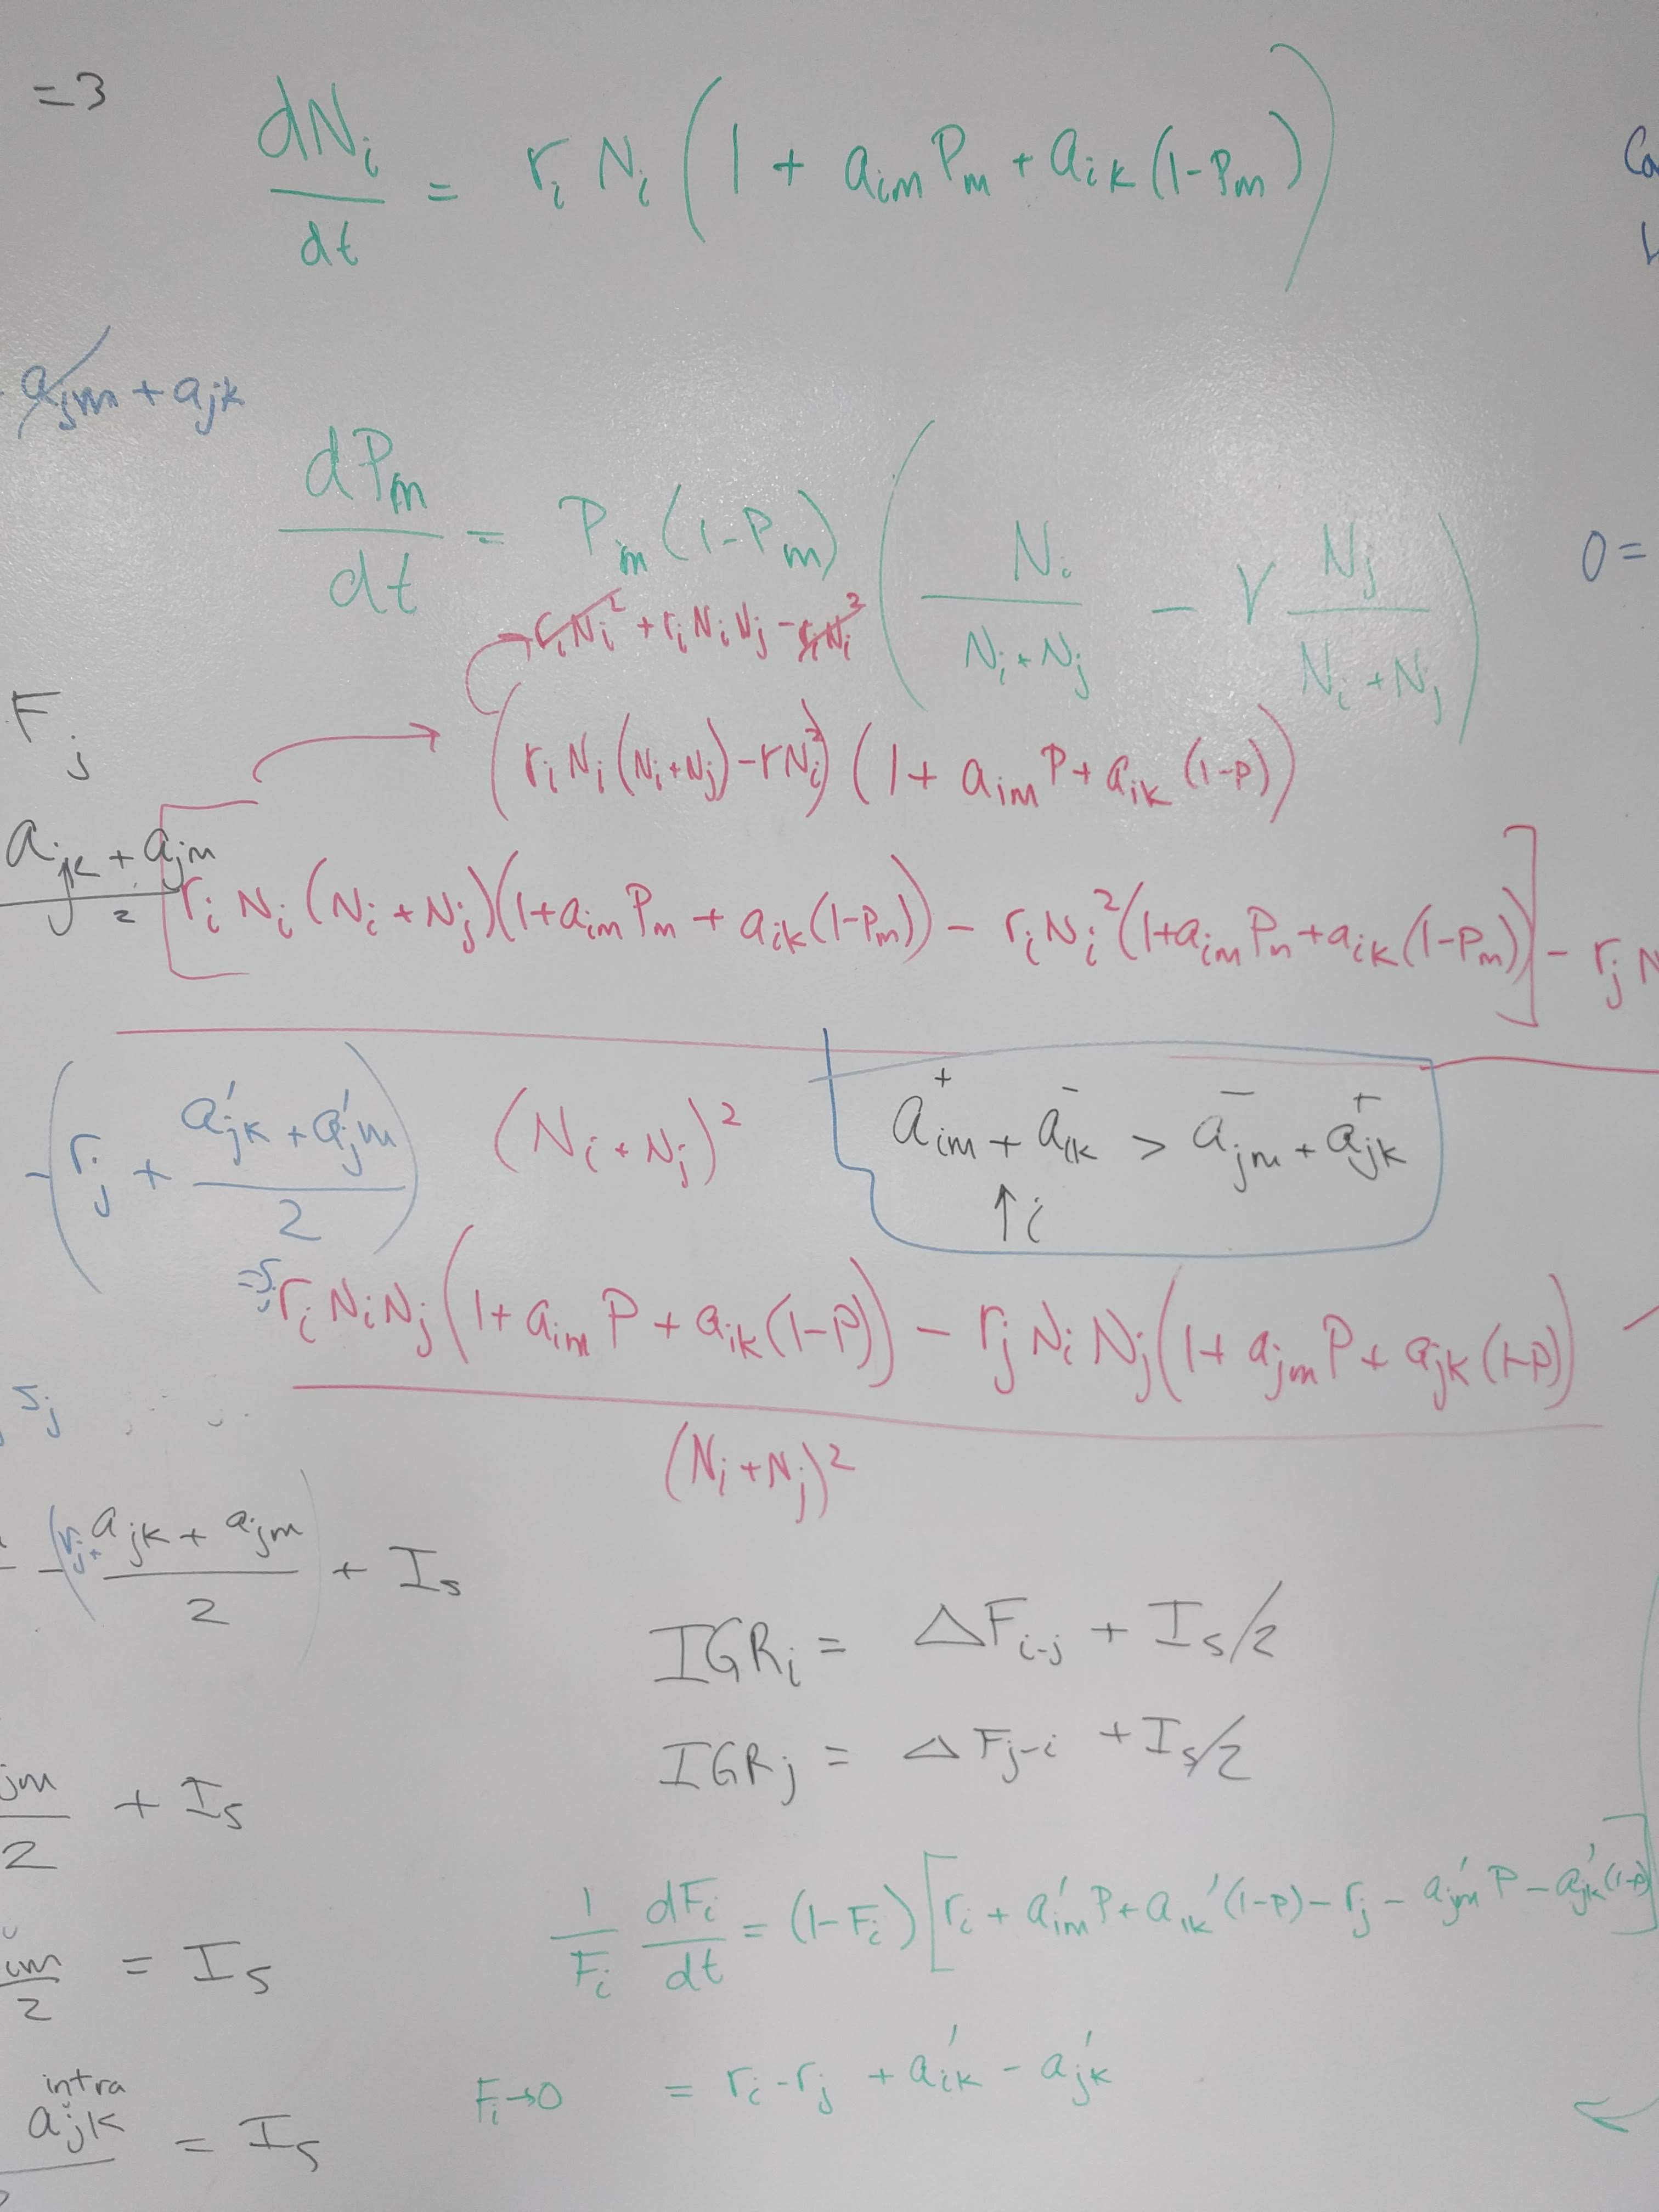 =3
dNᵢ/dt = rᵢ Nᵢ (1 + aᵢₘ Pₘ + aᵢₖ (1-Pₘ))
aⱼₘ + aⱼₖ
dPₘ/dt = Pₘ (1-Pₘ) (Nᵢ/(Nᵢ+Nⱼ) - V Nⱼ/(Nᵢ+Nⱼ))
0=
rᵢNᵢ² + rᵢNᵢNⱼ - rᵢNᵢ²
Fⱼ
(rᵢ Nᵢ (Nᵢ+Nⱼ) - rNᵢ²) (1 + aᵢₘ P + aᵢₖ (1-P))
aⱼₖ + aⱼₘ
2
[rᵢ Nᵢ (Nᵢ+Nⱼ)(1+aᵢₘ Pₘ + aᵢₖ(1-Pₘ)) - rᵢNᵢ²(1+aᵢₘ Pₘ + aᵢₖ(1-Pₘ))] - rⱼ N
(Nᵢ+Nⱼ)²
-(rⱼ + (a'ⱼₖ + a'ⱼₘ)/2)
aᵢₘ⁺ + aᵢₖ⁻ > aⱼₘ⁻ + aⱼₖ⁺
↑i
rᵢ Nᵢ Nⱼ (1 + aᵢₘ P + aᵢₖ (1-P)) - rⱼ Nᵢ Nⱼ (1 + aⱼₘ P + aⱼₖ (1-P))
(Nᵢ+Nⱼ)²
Sⱼ
-(rⱼ + (aⱼₖ + aⱼₘ)/2) + Iₛ
IGRᵢ = ΔFᵢ₋ⱼ + Iₛ/2
IGRⱼ = ΔFⱼ₋ᵢ + Iₛ/2
jm/2 + Iₛ
1/Fᵢ dFᵢ/dt = (1-Fᵢ) [rᵢ + a'ᵢₘ P + aᵢₖ' (1-P) - rⱼ - a'ⱼₘ P - a'ⱼₖ (1-P)]
im/2 = Iₛ
Fᵢ→0 = rᵢ - rⱼ + a'ᵢₖ - a'ⱼₖ
intra
aⱼₖ = Iₛ